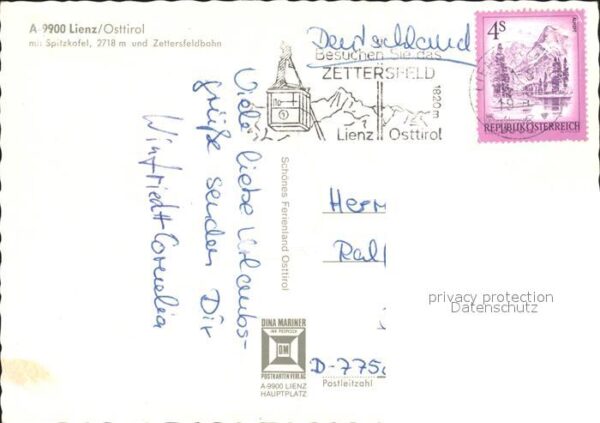 A-9900 Lienz/Osttirol
mit Spitzkofel, 2718 m und Zettersfeldbahn
Deutschland
Besuchen Sie das
ZETTERSFELD
1820 m
Lienz Osttirol
4S
REPUBLIK ÖSTERREICH
Viele liebe Urlaubs-
grüße senden Dir
Winfried + Cornelia
Schönes Ferienland Osttirol
Herr
Ralf
D-775
Postleitzahl
privacy protection
Datenschutz
DINA MARINER
DM
POSTKARTENVERLAG
A-9900 LIENZ
HAUPTPLATZ